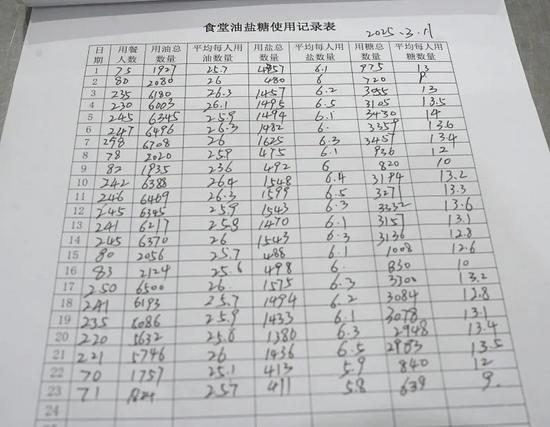 食堂油盐糖使用记录表 2025.3.11
日期 用餐人数 用油总数量 平均每人用油数量 用盐总数量 平均每人用盐数量 用糖总数量 平均每人用糖数量
1 75 1927 25.7 4857 6.1 975 13
2 80 2080 26 480 6 720 9
3 235 6180 26.3 1457 6.2 3055 13
4 230 6003 26.1 1495 6.5 3105 13.5
5 245 6345 25.9 1494 6.1 3430 14
6 247 6496 26.3 1482 6. 3359 13.6
7 258 6708 26 1625 6.3 3457 13.4
8 78 2020 25.9 475 6.1 936 12
9 82 1935 236 492 6 820 10
10 242 6388 264 1548 6.4 3194 13.2
11 246 6469 26.3 1599 6.5 3271 13.3
12 245 6345 25.9 1543 6.3 3332 13.6
13 241 6217 25.8 1470 6.1 3157 13.1
14 245 6370 26 1543 6.3 3136 12.8
15 80 2056 25.7 488 6.1 1008 12.6
16 83 2124 25.6 498 6. 830 10
17 250 6500 26 1575 6.3 3300 13.2
18 241 6193 25.7 1494 6.2 3084 12.8
19 235 6086 25.9 1433 6.1 3078 13.1
20 220 5632 25.6 1380 6.3 2948 13.4
21 221 5746 26 1436 6.5 2983 13.5
22 70 1757 25.1 413 5.9 840 12
23 71 1824 257 411 5.8 639 9.
24